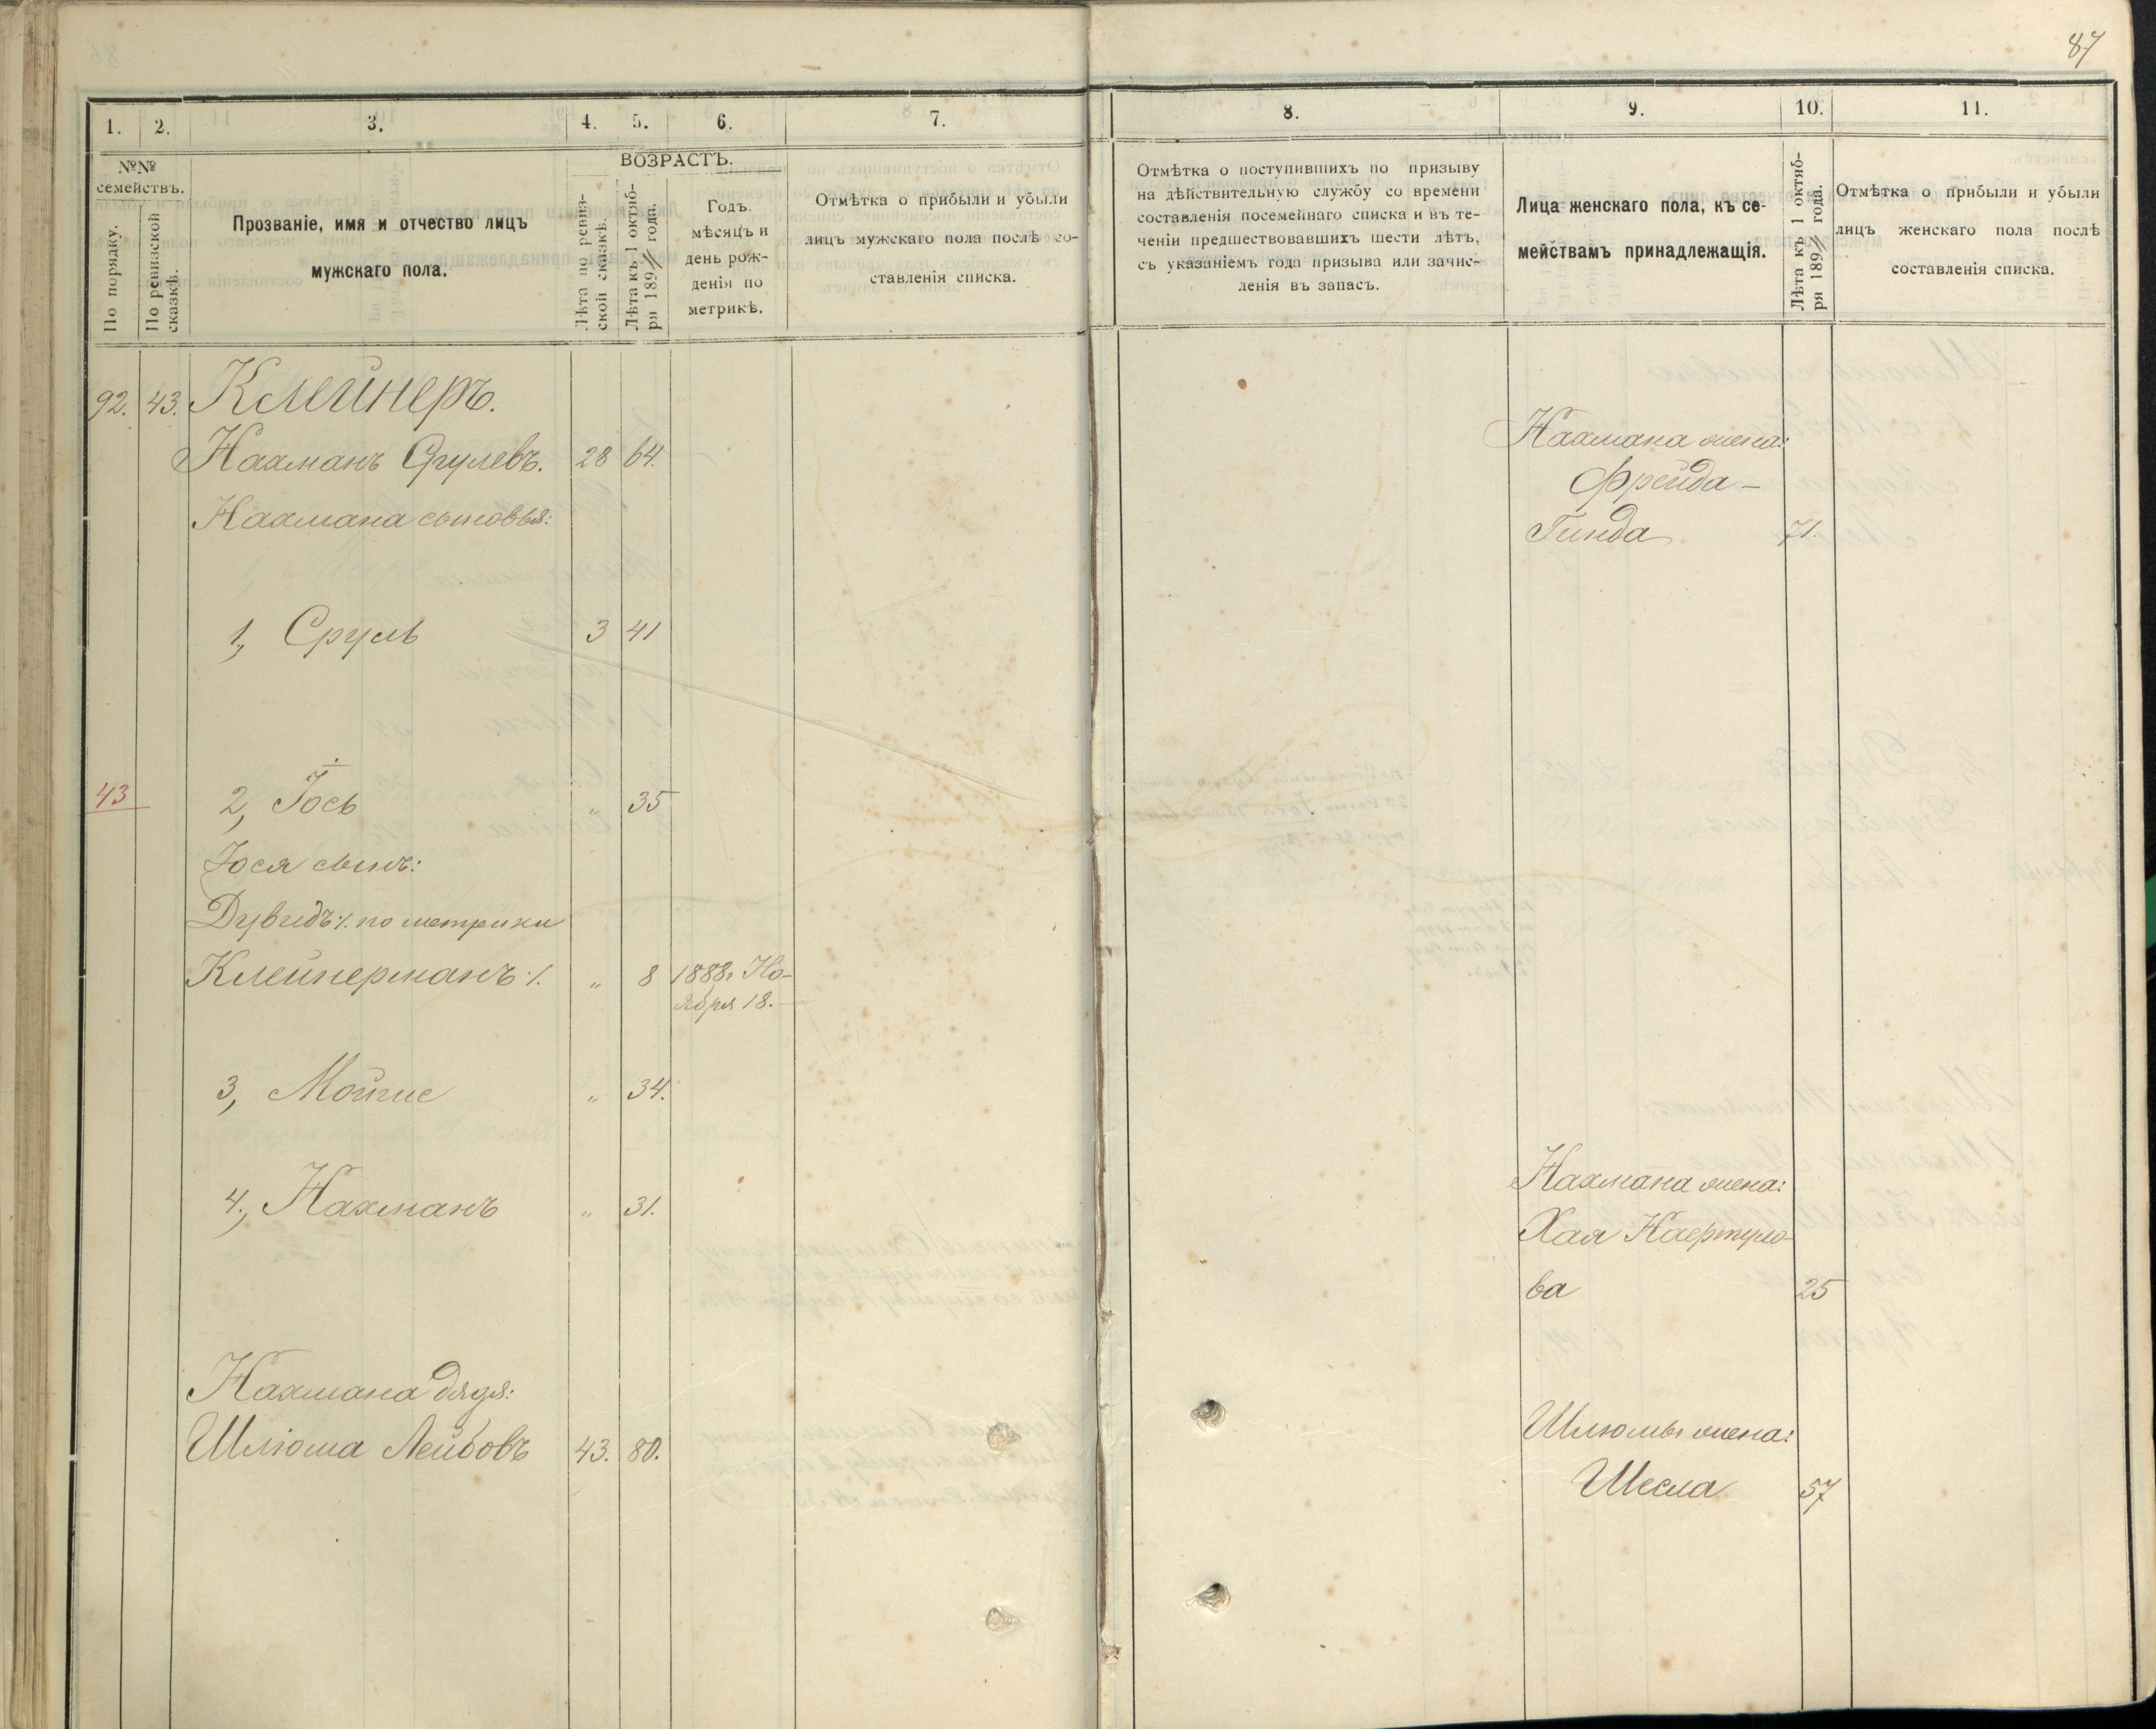 87
1. 2. 3. 4. 5. 6. 7.
№№ семействъ.
По порядку.
По ревизской сказкѣ.
Прозваніе, имя и отчество лицъ
мужскаго пола.
ВОЗРАСТЪ.
Лѣта по ревиз-
ской сказкѣ.
Лѣта къ 1 октяб-
ря 189 года.
Годъ,
мѣсяцъ и
день рож-
денія по
метрикѣ.
Отмѣтка о прибыли и убыли
лицъ мужскаго пола послѣ со-
ставленія списка.
92. 43. Клейнеръ.
Нахманъ Срулевъ. 28 64.
Нахмана сыновья:
1, Сруль 3 41
43 2, Іось " 35
Іося сынъ:
Дувидъ ٪ по метрики
Клейнерманъ ٪ " 8 1888г Но-
ября 18.
3, Мошко " 34.
4, Нахманъ " 31.
Нахмана дядя:
Шлюма Лейбовъ 43. 80.
8. 9. 10. 11.
Отмѣтка о поступившихъ по призыву
на дѣйствительную службу со времени
составленія посемейнаго списка и въ те-
ченіи предшествовавшихъ шести лѣтъ,
съ указаніемъ года призыва или зачис-
ленія въ запасъ.
Лица женскаго пола, къ се-
мействамъ принадлежащія.
Лѣта къ 1 октяб-
ря 189 года.
Отмѣтка о прибыли и убыли
лицъ женскаго пола послѣ
составленія списка.
Нахмана жена:
Фрейда-
Гинда 71.
Нахмана жена:
Хая
ва 25
Шлюмы жена:
Шесла 57